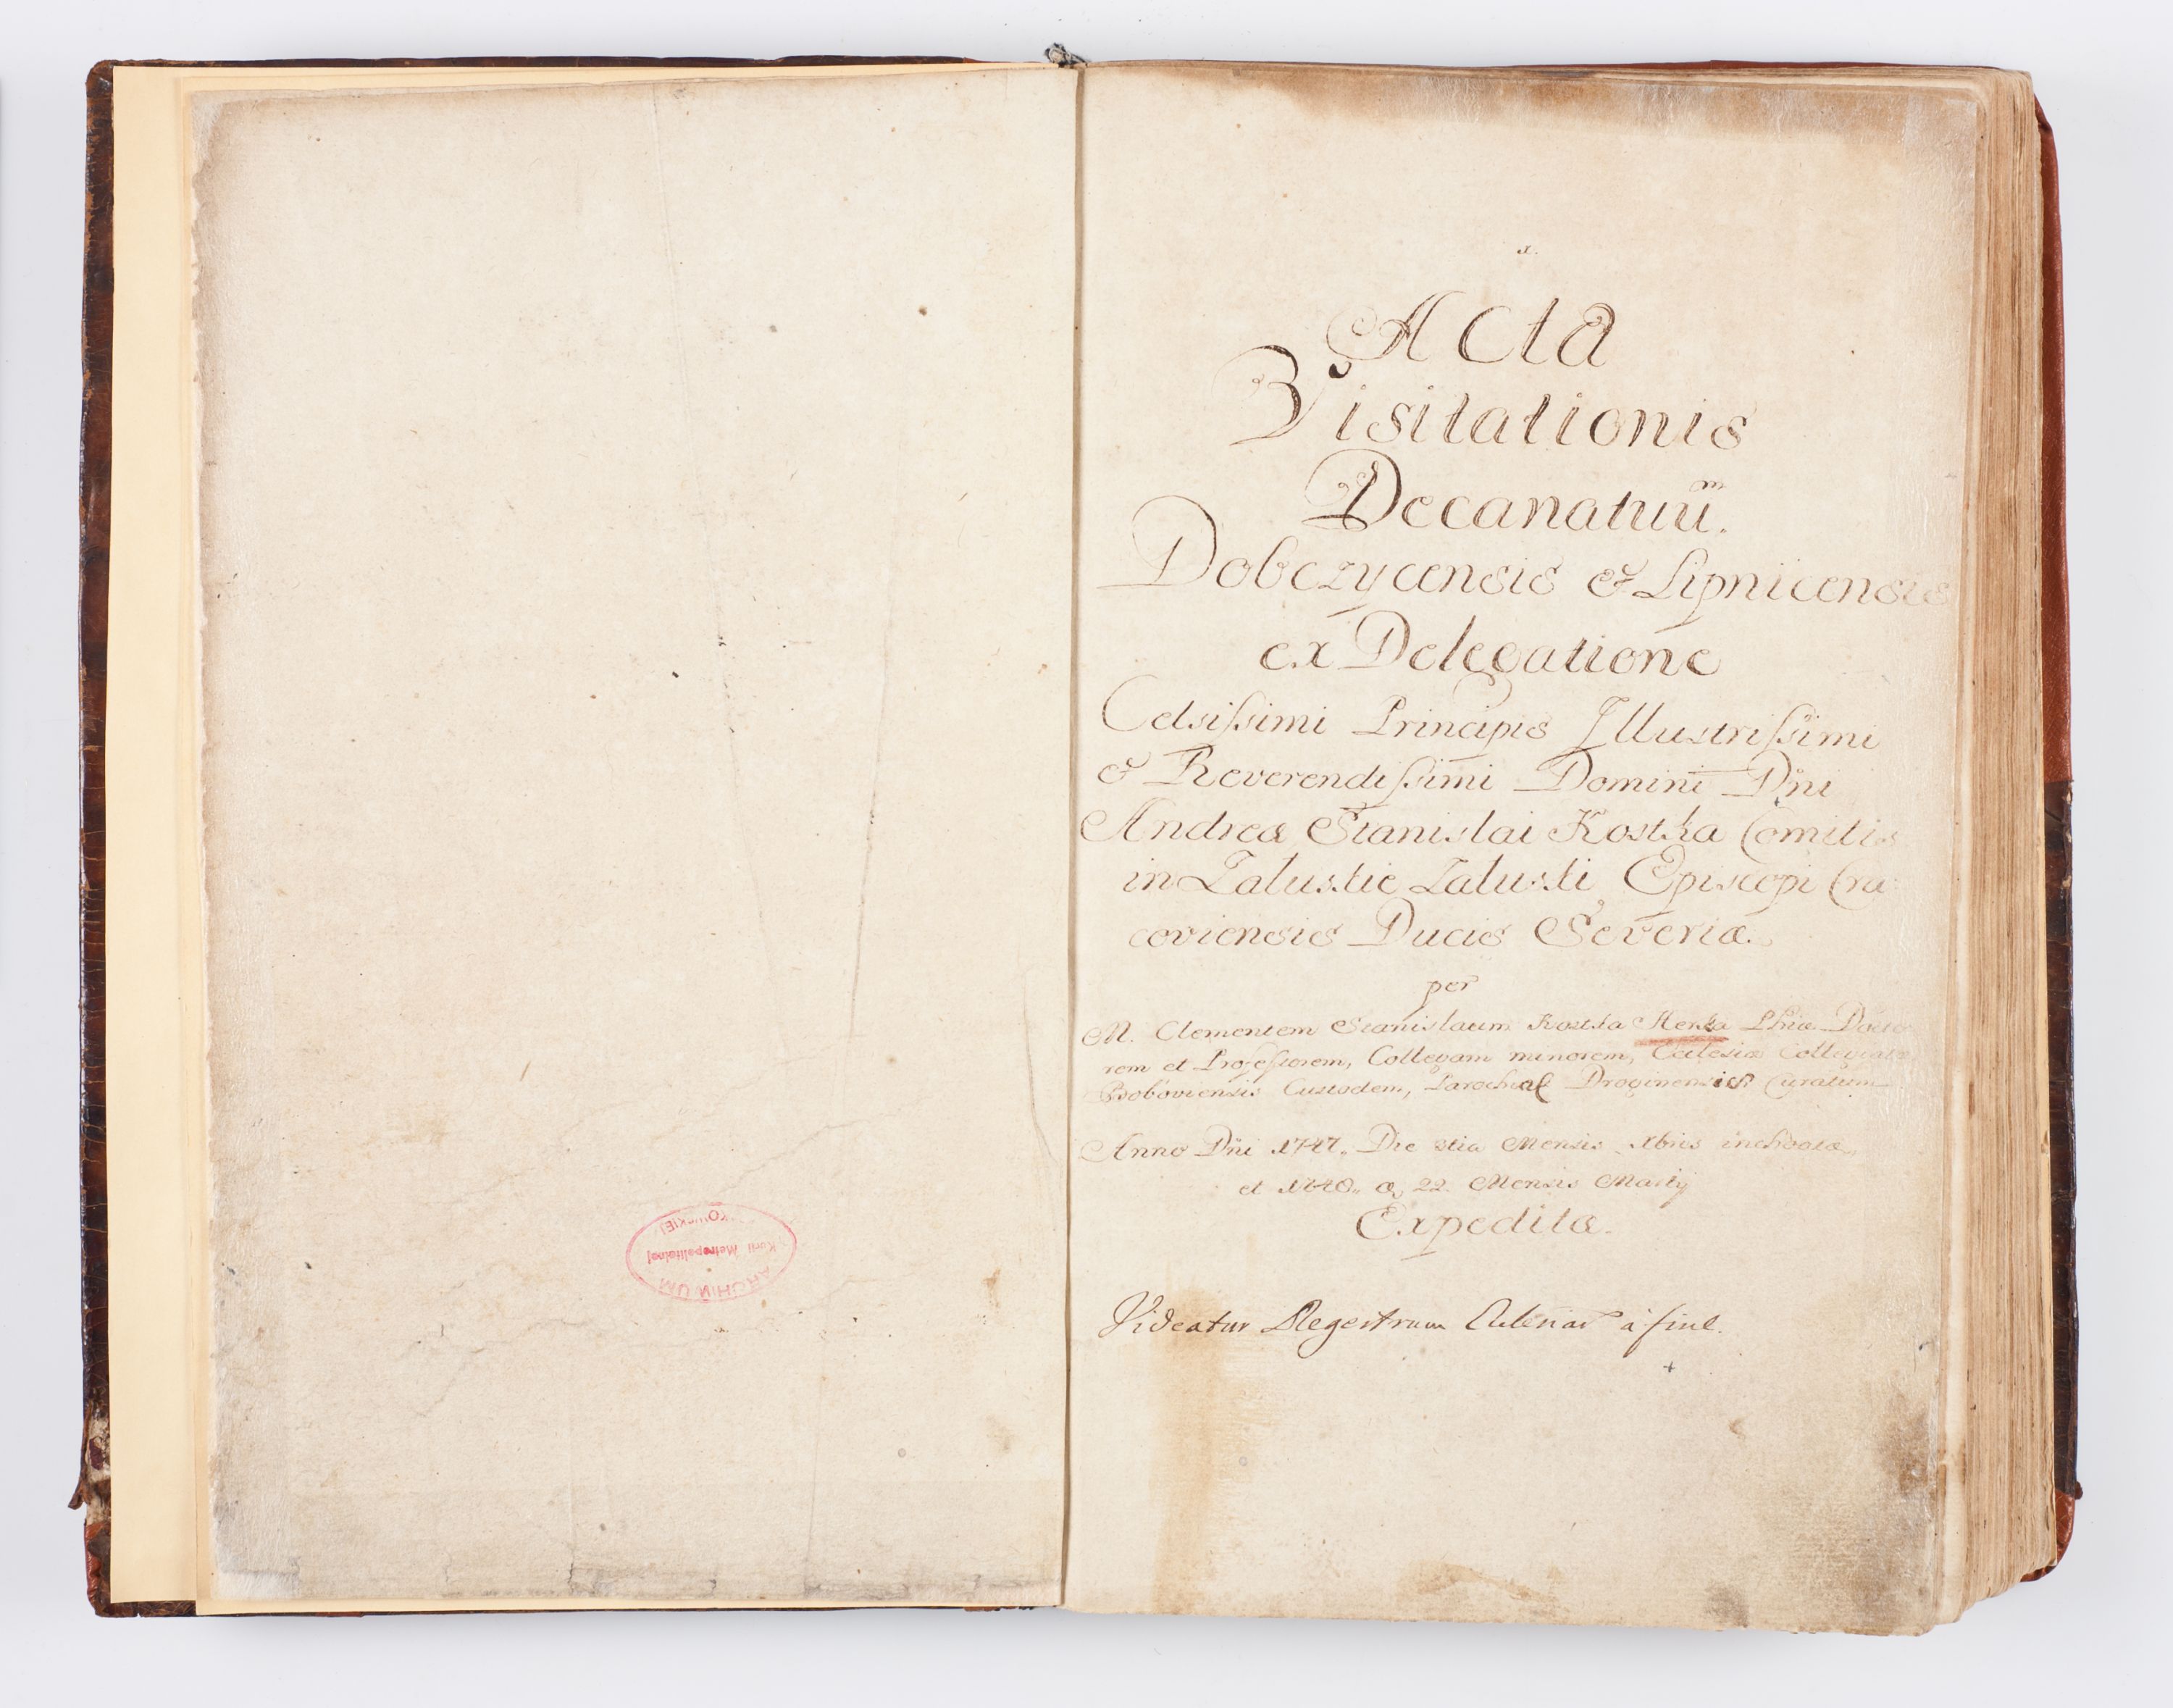 ARCHIWUM
Kurii Metropolitalnej
1.
Acta
Visitationis
Decanatuũm.
Dobczycensis & Lipnicensis
ex Delegatione
Celsiſsimi Principis Illustriſsimi
& Reverendiſsimi Domini Dñi
Andreæ Stanislai Kostka Comitis
in Zaluskie Zaluski Episcopi Cra
coviensis Ducis Severiæ.
per
M. Clementem Stanislaum Kostka Herka Phiæ Docto
rem et Profeſsorem, Collegam minorem, Ecclesiæ Collegiatæ
Boboviensis Custodem, Parochial Droginensis Curatum
Anno Dñi 1747. Die Mensis Xbris inchoatæ
et 1748. 22 Mensis Martij
Expeditæ.
Videatur Regestrum à fine.
+